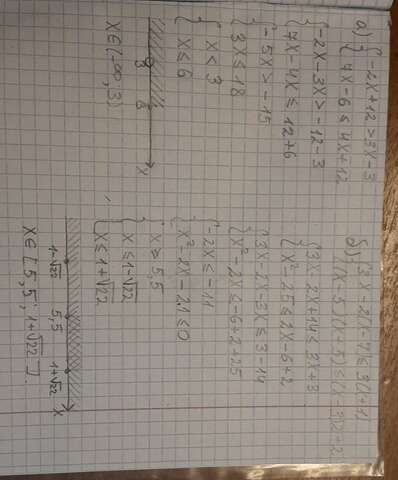 а) { -2x + 12 > 3x - 3
{ 7x - 6 ≤ 4x + 12
{ -2x - 3x > -12 - 3
{ 7x - 4x ≤ 12 + 6
{ -5x > -15
{ 3x ≤ 18
{ x < 3
{ x ≤ 6
3 6 x
x ∈ (-∞, 3)
б) { 3x - 2(x - 7) ≤ 3(x + 1)
{ (x - 5)(x + 5) ≤ (x - 3)2 + 2
{ 3x - 2x + 14 ≤ 3x + 3
{ x² - 25 ≤ 2x - 6 + 2
{ 3x - 2x - 3x ≤ 3 - 14
{ x² - 2x ≤ -6 + 2 + 25
{ -2x ≤ -11
{ x² - 2x - 21 ≤ 0
{ x ≥ 5,5
{ x ≤ 1 - √22
{ x ≤ 1 + √22
1-√22 5,5 1+√22 x
x ∈ [5,5; 1+√22].